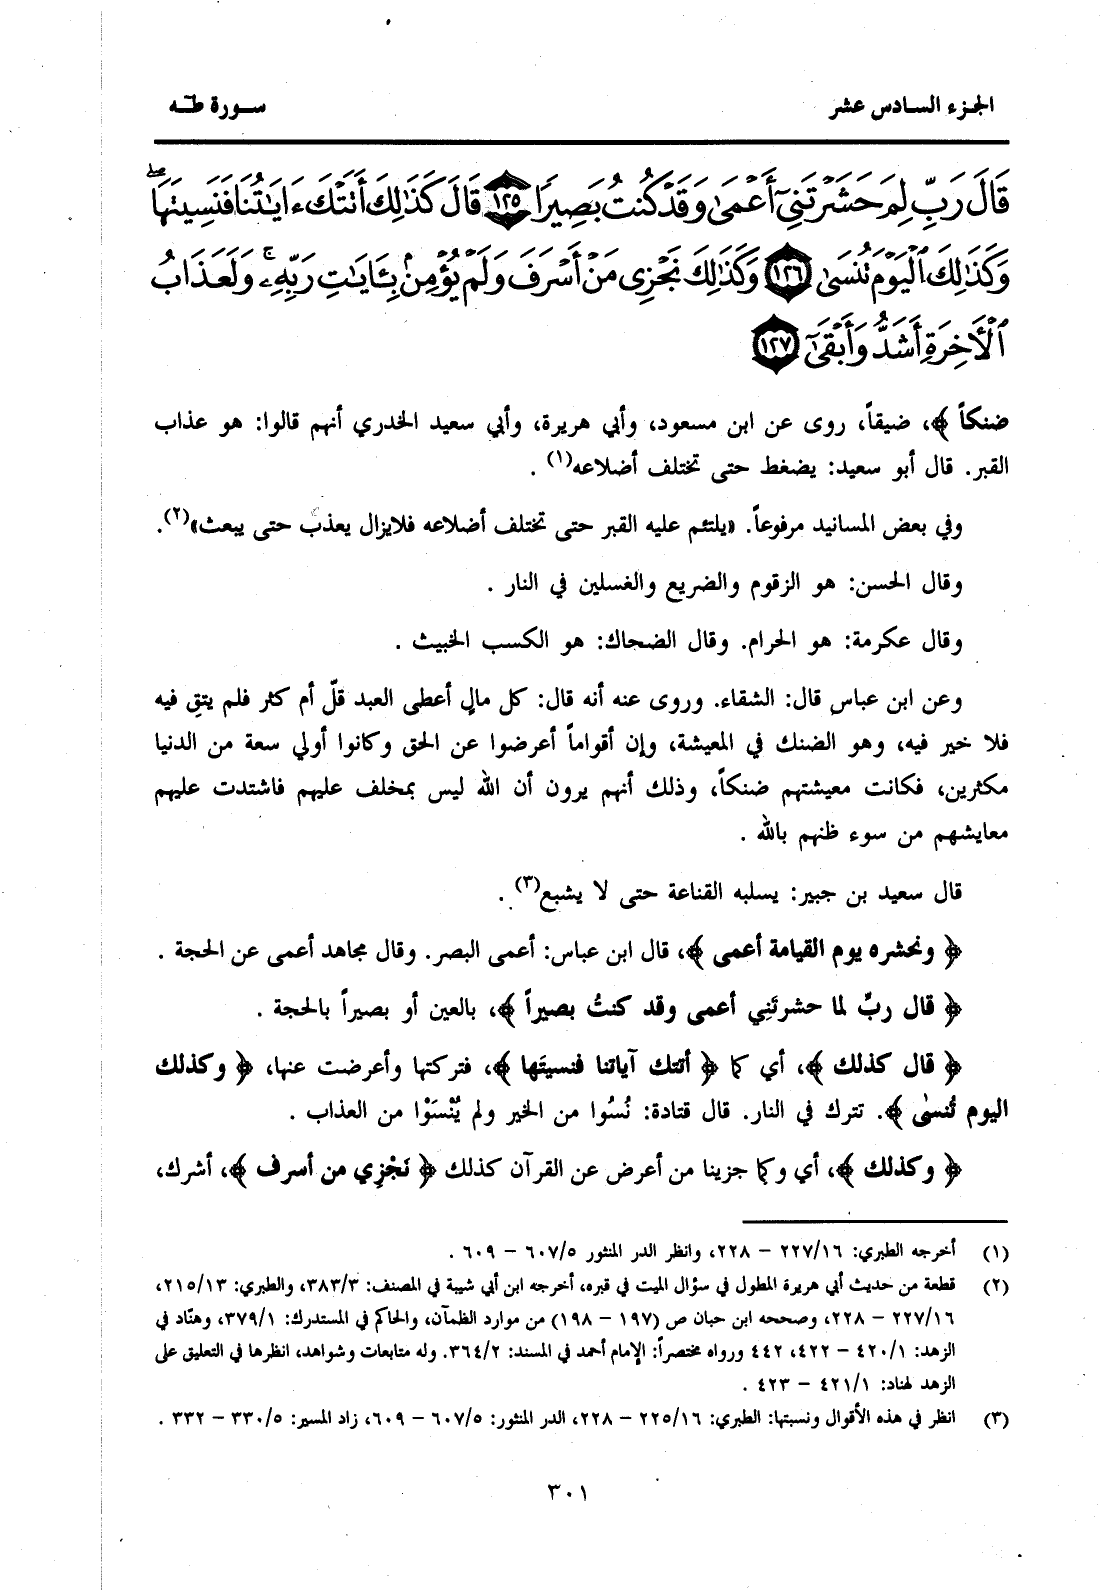 الجزء السادس عشر
سورة طه
قَالَ رَبِّ لِمَ حَشَرْتَنِىٓ أَعْمَىٰ وَقَدْ كُنتُ بَصِيرًا ١٢٥ قَالَ كَذَٰلِكَ أَتَتْكَ ءَايَٰتُنَا فَنَسِيتَهَا ۖ
وَكَذَٰلِكَ ٱلْيَوْمَ تُنسَىٰ ١٢٦ وَكَذَٰلِكَ نَجْزِى مَنْ أَسْرَفَ وَلَمْ يُؤْمِنۢ بِـَٔايَٰتِ رَبِّهِۦ ۚ وَلَعَذَابُ
ٱلْأَخِرَةِ أَشَدُّ وَأَبْقَىٰٓ ١٢٧
ضنكاً ﴾، ضيقاً، روى عن ابن مسعود، وأبي هريرة، وأبي سعيد الخدري أنهم قالوا: هو عذاب
القبر. قال أبو سعيد: يضغط حتى تختلف أضلاعه(١) .
وفي بعض المسانيد مرفوعاً. «يلتئم عليه القبر حتى تختلف أضلاعه فلايزال يعذب حتى يبعث»(٢).
وقال الحسن: هو الزقوم والضريع والغسلين في النار .
وقال عكرمة: هو الحرام. وقال الضحاك: هو الكسب الخبيث .
وعن ابن عباسٍ قال: الشقاء. وروى عنه أنه قال: كل مالٍ أعطى العبد قلّ أم كثر فلم يتقِ فيه
فلا خير فيه، وهو الضنك في المعيشة، وإن أقواماً أعرضوا عن الحق وكانوا أولي سعة من الدنيا
مكثرين، فكانت معيشتهم ضنكاً، وذلك أنهم يرون أن الله ليس بمخلف عليهم فاشتدت عليهم
معايشهم من سوء ظنهم بالله .
قال سعيد بن جبير: يسلبه القناعة حتى لا يشبع(٣) .
﴿ ونحشره يوم القيامة أعمى ﴾، قال ابن عباس: أعمى البصر. وقال مجاهد أعمى عن الحجة .
﴿ قال ربِّ لما حشرتَنِي أعمى وقد كنتُ بصيراً ﴾، بالعين أو بصيراً بالحجة .
﴿ قال كذلك ﴾، أي كما ﴿ أتتك آياتنا فنسيتَها ﴾، فتركتها وأعرضت عنها، ﴿ وكذلك
اليوم تُنسىٰ ﴾. تترك في النار. قال قتادة: نُسُوا من الخير ولم يُنْسَوْا من العذاب .
﴿ وكذلك ﴾، أي وكما جزينا من أعرض عن القرآن كذلك ﴿ نَجْزِي من أسرف ﴾، أشرك،
(١) أخرجه الطبري: ٢٢٧/١٦ – ٢٢٨، وانظر الدر المنثور ٦٠٧/٥ – ٦٠٩ .
(٢) قطعة من حديث أبي هريرة المطول في سؤال الميت في قبره، أخرجه ابن أبي شيبة في المصنف: ٣٨٣/٣، والطبري: ٢١٥/١٣،
٢٢٧/١٦ – ٢٢٨، وصححه ابن حبان ص (١٩٧ – ١٩٨) من موارد الظمآن، والحاكم في المستدرك: ٣٧٩/١، وهنّاد في
الزهد: ٤٢٠/١ – ٤٢٢، ٤٤٢ ورواه مختصراً: الإمام أحمد في المسند: ٣٦٤/٢. وله متابعات وشواهد، انظرها في التعليق على
الزهد لهناد: ٤٢١/١ – ٤٢٣ .
(٣) انظر في هذه الأقوال ونسبتها: الطبري: ٢٢٥/١٦ – ٢٢٨، الدر المنثور: ٦٠٧/٥ – ٦٠٩، زاد المسير: ٣٣٠/٥ – ٣٣٢ .
٣٠١